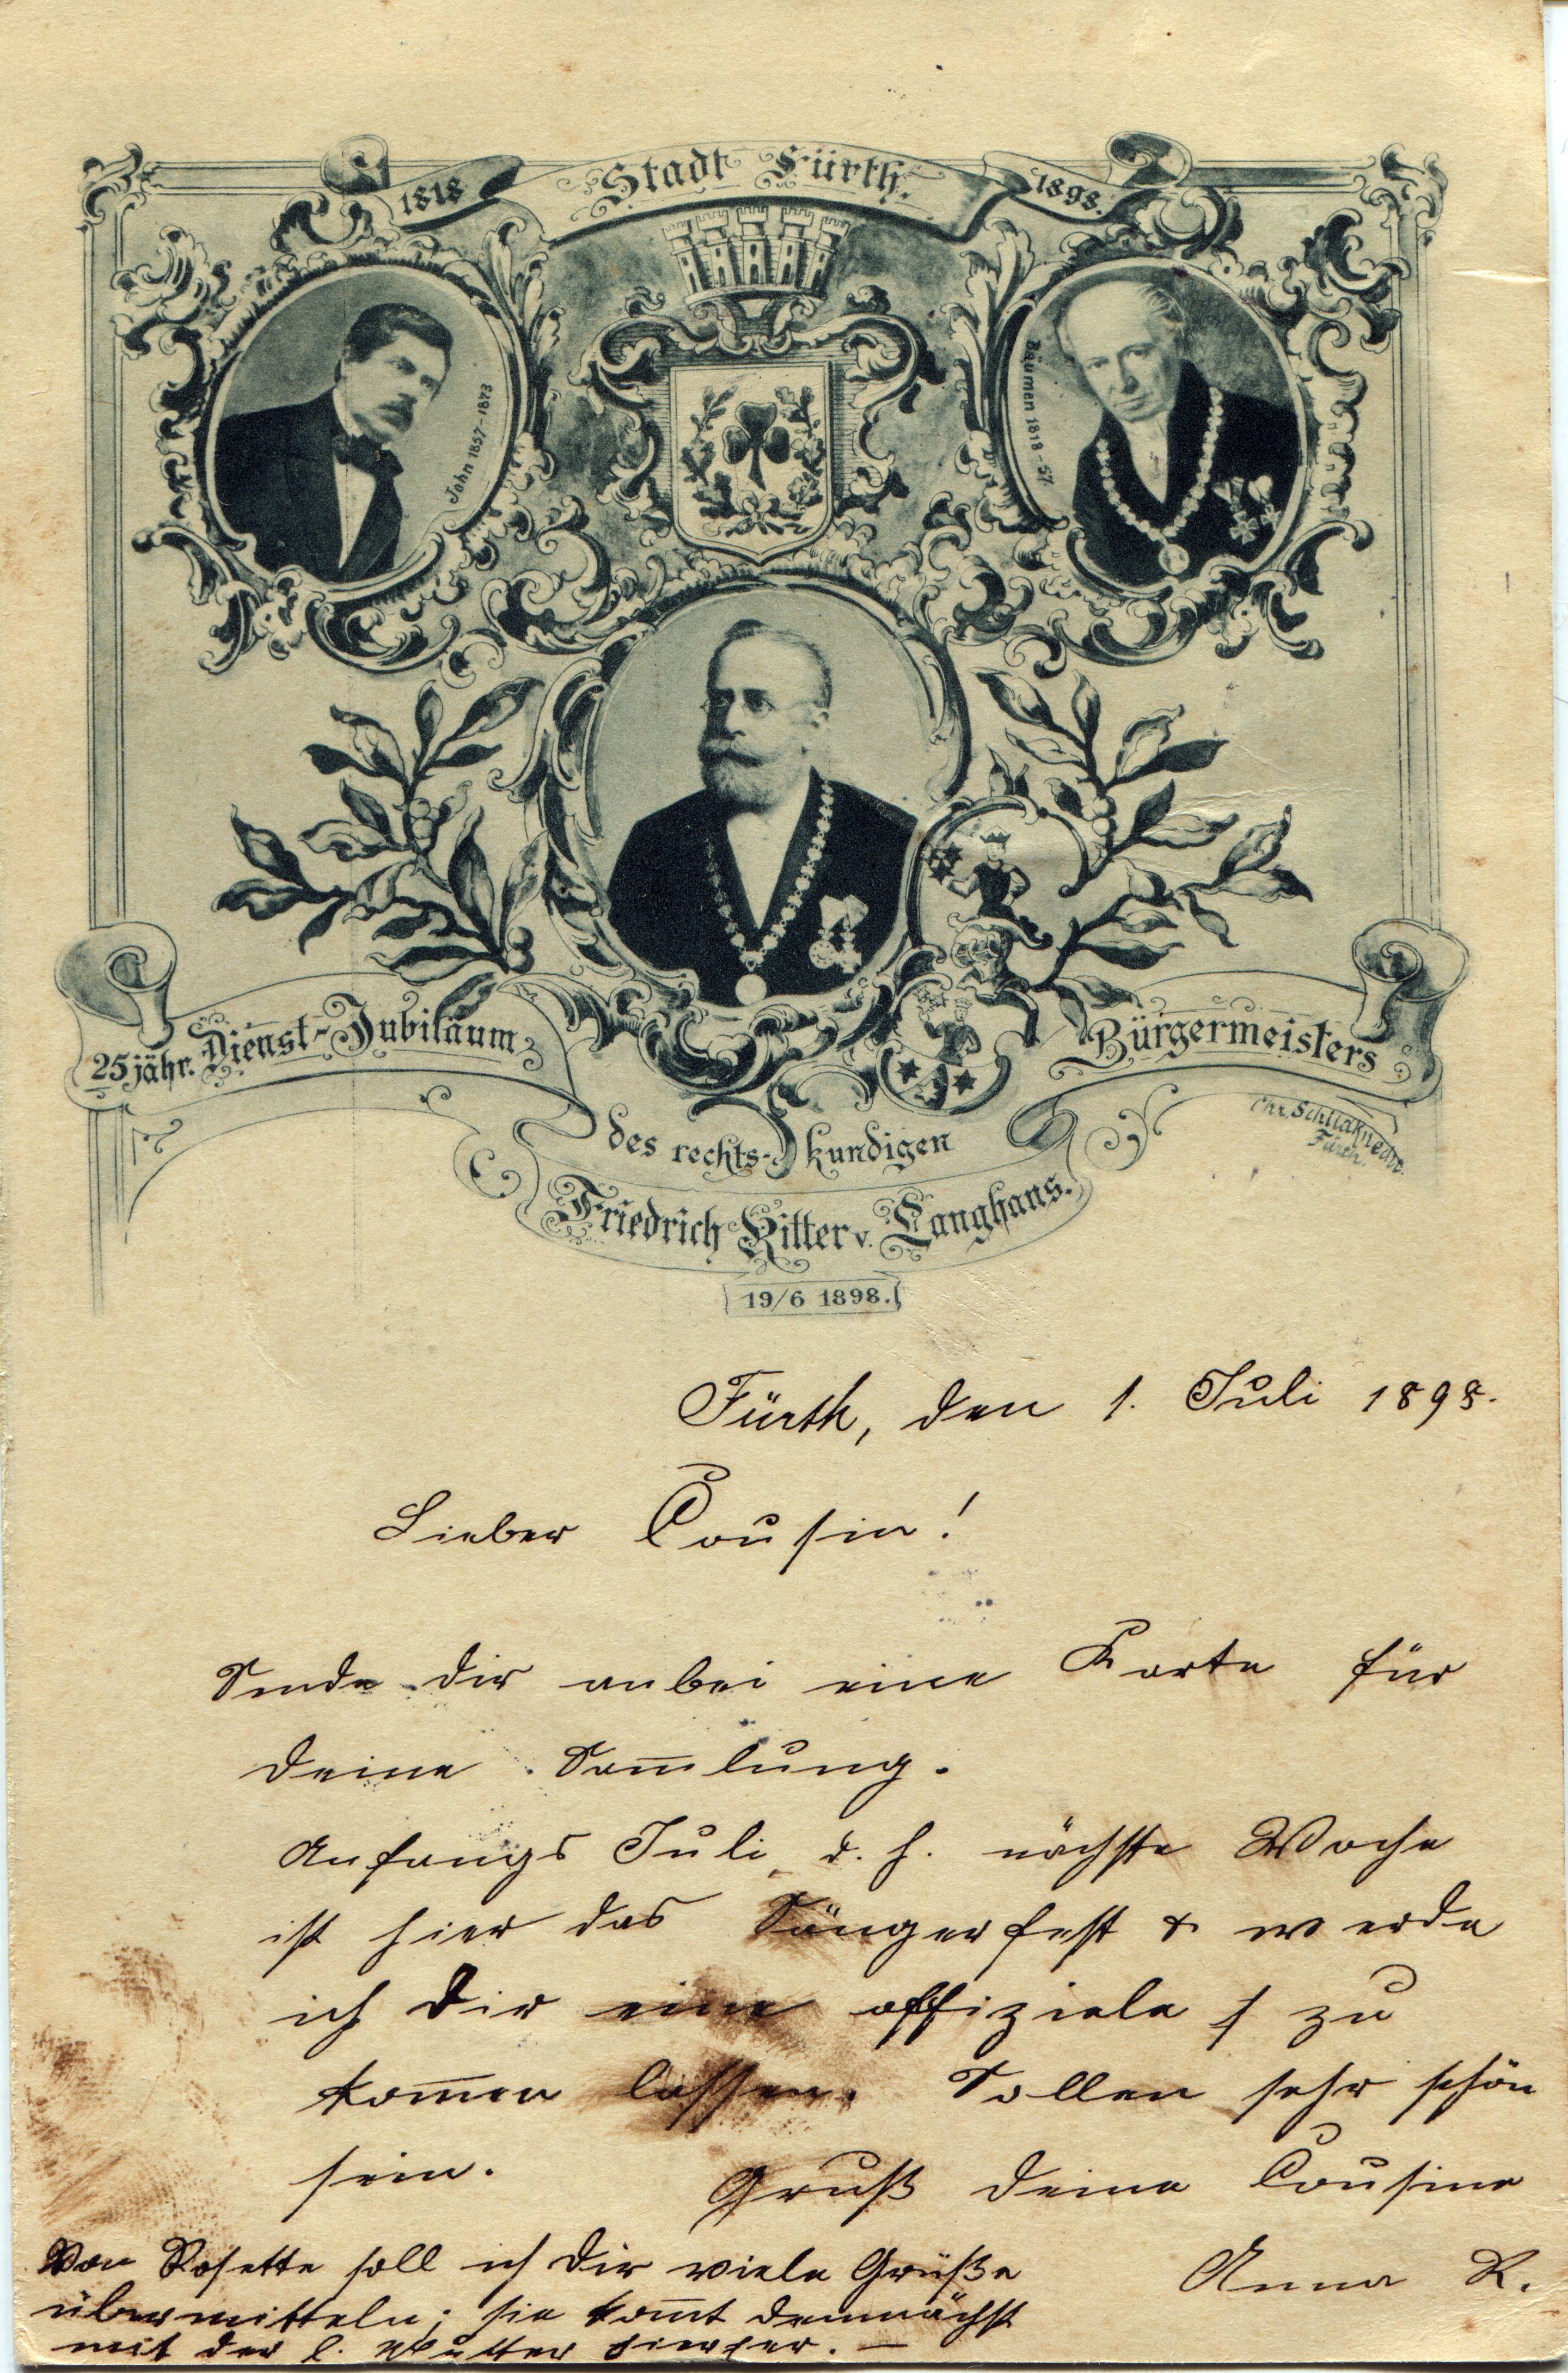 1818 Stadt Fürth. 1898.
John 1857-1873
Bäumen 1818-57.
25jähr. Dienst-Jubiläum
des rechts-kundigen
Bürgermeisters
Friedrich Ritter v. Langhans.
19/6 1898.
Chr. Schliaknecht.
Fürth.
Fürth, den 1. Juli 1898.
Lieber Cousin!
Sende dir anbei eine Karte für
deine Sam̅lung.
Anfangs Juli, d. h. nächste Woche
ist hier das Sängerfest & werde
ich dir eine offiziele zu
kom̅en lassen. Sollen sehr schön
sein.
Gruß deine Cousine
Anna R.
Von Rosette soll ich dir viele Grüße
übermitteln; sie kom̅t demnächst
mit der l. Mutter hierher. —